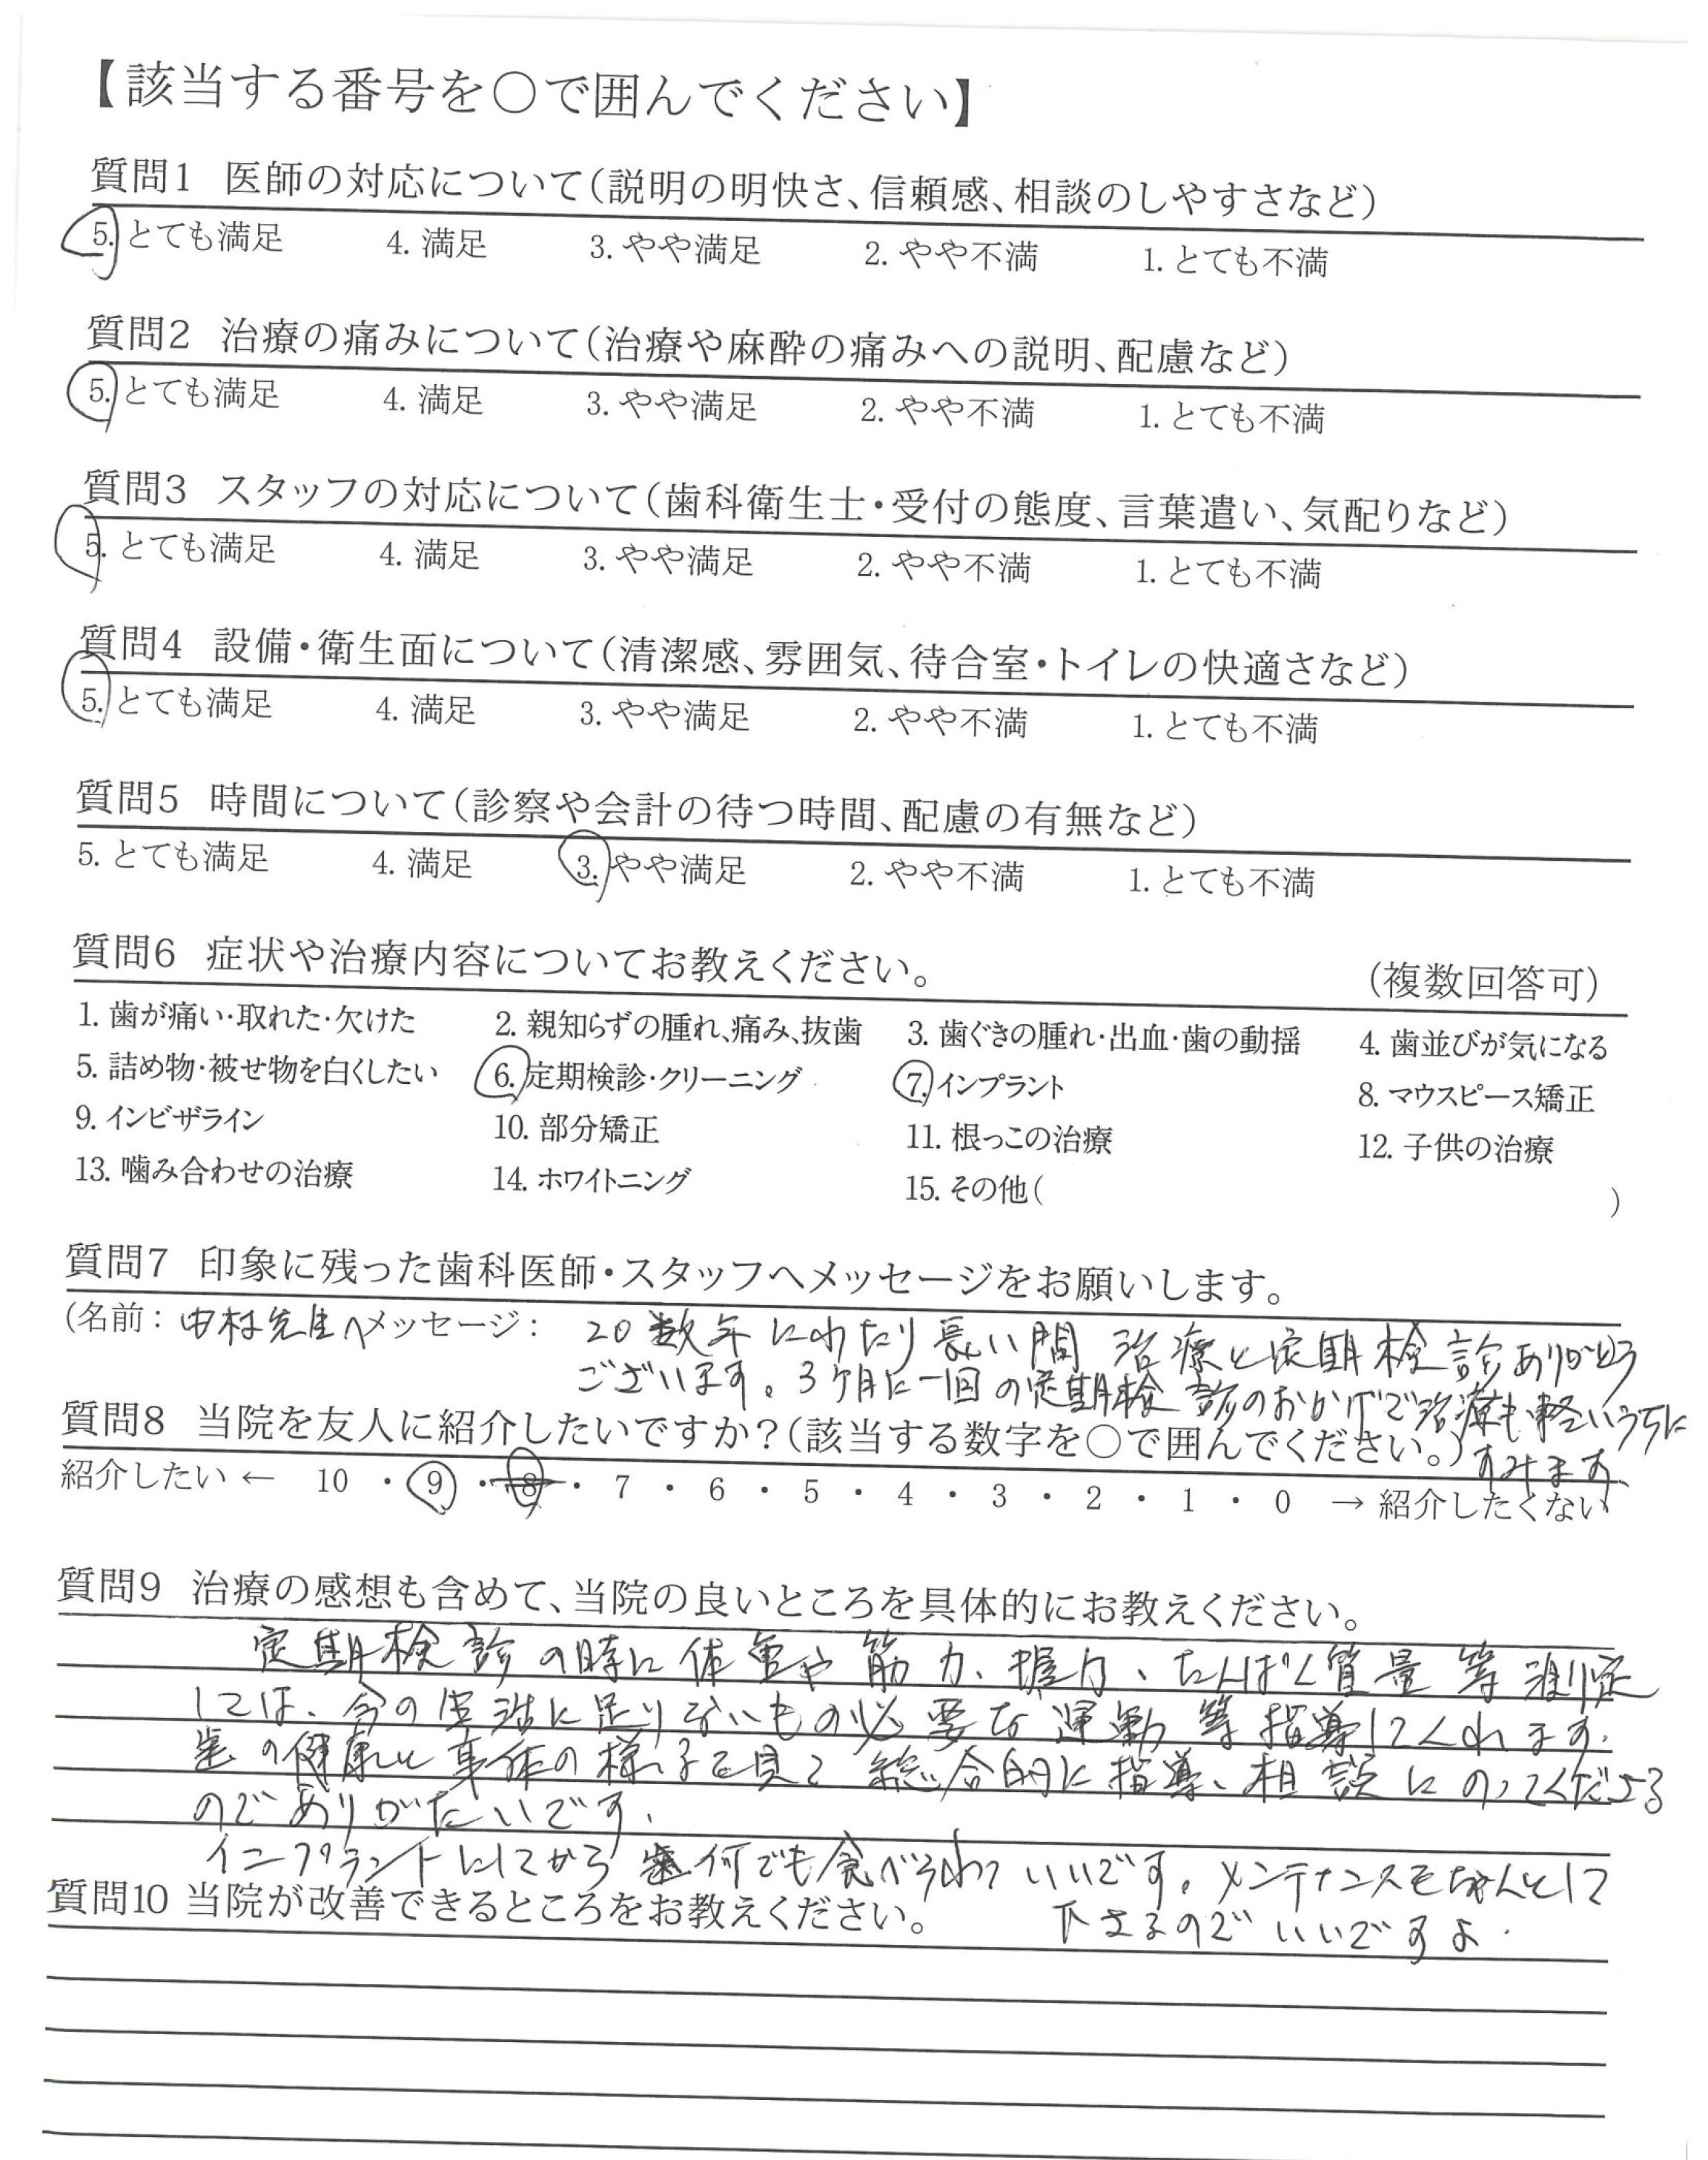 【該当する番号を○で囲んでください】
質問1 医師の対応について(説明の明快さ、信頼感、相談のしやすさなど)
5. とても満足 4. 満足 3. やや満足 2. やや不満 1. とても不満
質問2 治療の痛みについて(治療や麻酔の痛みへの説明、配慮など)
5. とても満足 4. 満足 3. やや満足 2. やや不満 1. とても不満
質問3 スタッフの対応について(歯科衛生士・受付の態度、言葉遣い、気配りなど)
5. とても満足 4. 満足 3. やや満足 2. やや不満 1. とても不満
質問4 設備・衛生面について(清潔感、雰囲気、待合室・トイレの快適さなど)
5. とても満足 4. 満足 3. やや満足 2. やや不満 1. とても不満
質問5 時間について(診察や会計の待つ時間、配慮の有無など)
5. とても満足 4. 満足 3. やや満足 2. やや不満 1. とても不満
質問6 症状や治療内容についてお教えください。 (複数回答可)
1. 歯が痛い・取れた・欠けた 2. 親知らずの腫れ、痛み、抜歯 3. 歯ぐきの腫れ・出血・歯の動揺 4. 歯並びが気になる
5. 詰め物・被せ物を白くしたい 6. 定期検診・クリーニング 7. インプラント 8. マウスピース矯正
9. インビザライン 10. 部分矯正 11. 根っこの治療 12. 子供の治療
13. 噛み合わせの治療 14. ホワイトニング 15. その他( )
質問7 印象に残った歯科医師・スタッフへメッセージをお願いします。
(名前: 中村先生へメッセージ: 20数年にわたり長い間 治療と定期検診ありがとう
ございます。3ケ月に一回の定期検診のおかげで治療も軽いうちに
すみます
質問8 当院を友人に紹介したいですか?(該当する数字を○で囲んでください。)
紹介したい ← 10 ・ 9 ・ 8 ・ 7 ・ 6 ・ 5 ・ 4 ・ 3 ・ 2 ・ 1 ・ 0 → 紹介したくない
質問9 治療の感想も含めて、当院の良いところを具体的にお教えください。
定期検診の時に体重や筋力、握力、たんぱく質量等測定
しては、今の生活に足りないもの必要な運動等指導してくれます。
歯の健康と身体の様子を見て総合的に指導、相談にのってくださる
のでありがたいです。
インプラントにしてから 何でも食べられて いいです。メンテナンスもちゃんとして
下さるのでいいですよ.
質問10 当院が改善できるところをお教えください。